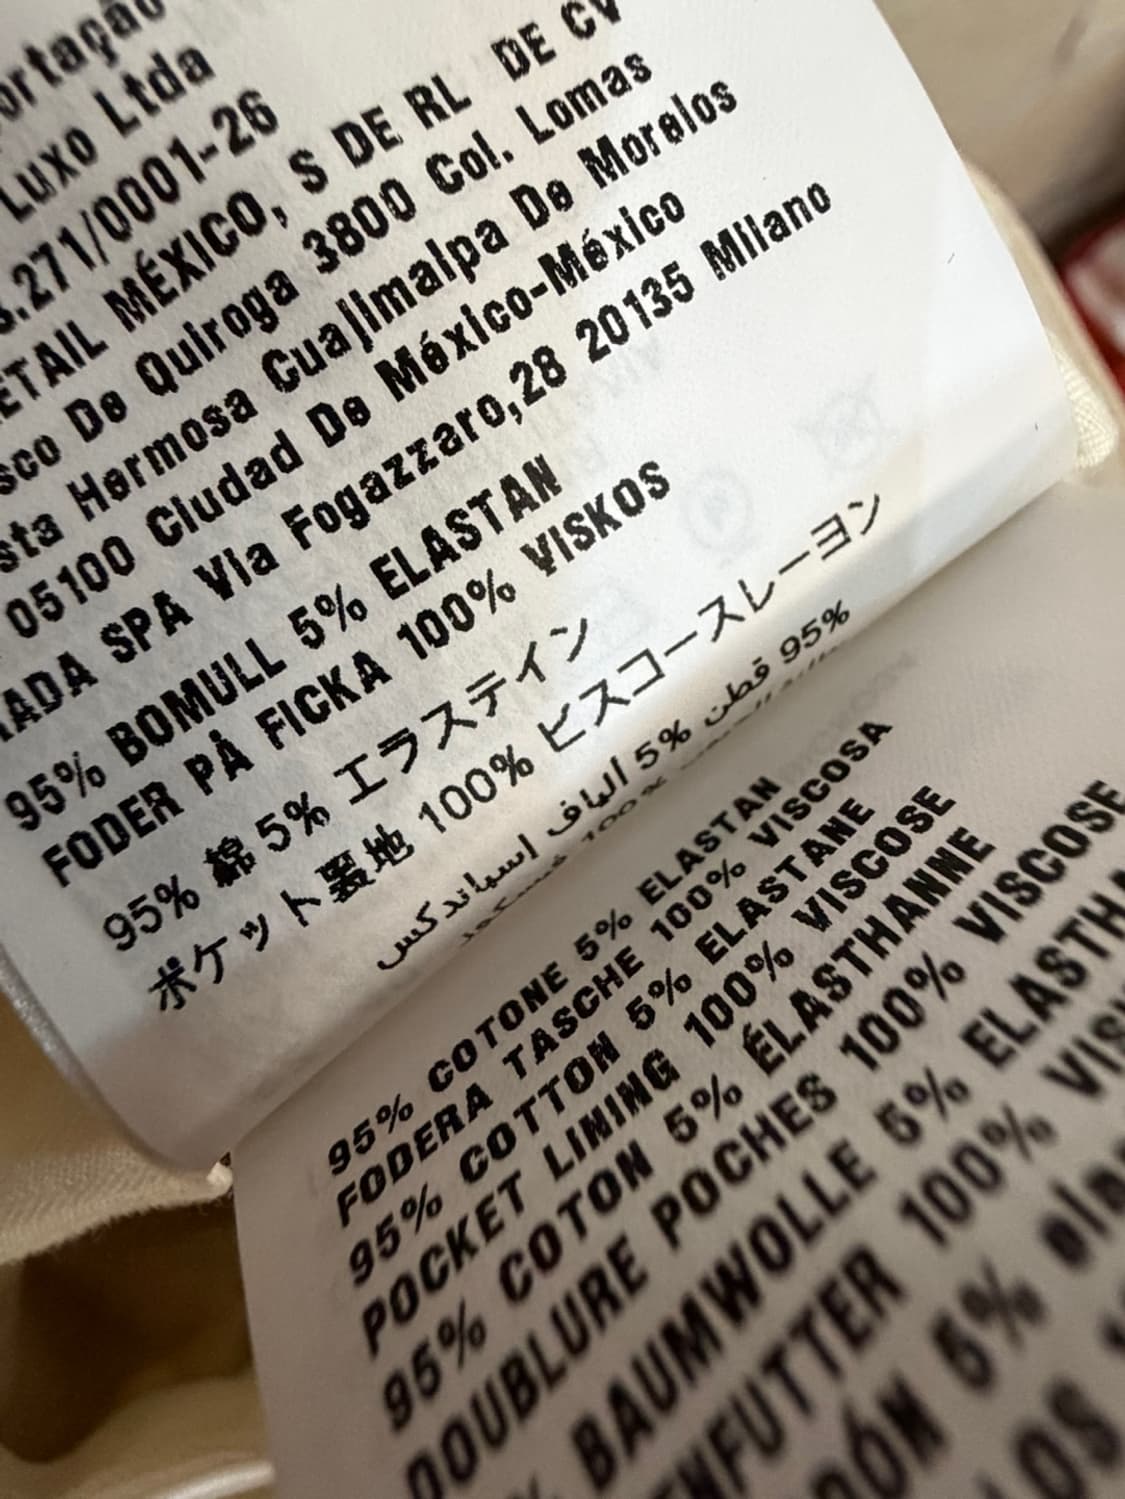 Luxo Ltda
.271/0001-26
MÉXICO, S DE RL DE CV
De Quiroga 3800 Col. Lomas
Hermosa Cuajimalpa De Morelos
05100 Ciudad De México-México
SPA Via Fogazzaro,28 20135 Milano
95% BOMULL 5% ELASTAN
FODER PÅ FICKA 100% VISKOS
95% 綿 5% エラステイン
ポケット裏地 100% ビスコースレーヨン
95% قطن 5% ألياف إسباندكس
95% COTONE 5% ELASTAN
FODERA TASCHE 100% VISCOSA
95% COTTON 5% ELASTANE
POCKET LINING 100% VISCOSE
95% COTON 5% ÉLASTHANNE
DOUBLURE POCHES 100% VISCOSE
BAUMWOLLE 5%
100%
5%